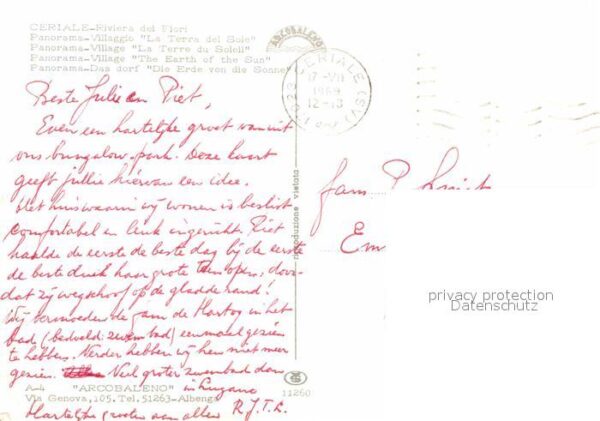 CERIALE-Riviera dei Fiori
Panorama-Villaggio "La Terra del Sole"
Panorama-Village "La Terre du Soleil"
Panorama-Village "The Earth of the Sun"
Panorama-Das dorf "Die Erde von die Sonne"
ARCOBALENO
CERIALE (SV)
17-VII
1969
12-18
Beste Jullie en Piet,
Even een hartelijke groet vanuit
ons bungalow-park. Deze kaart
geeft jullie hiervan een idee.
Het huis waarin wij wonen is beslist
comfortabel en leuk ingericht. Piet
haalde de eerste de beste dag bij de eerste
de beste duik haar grote teen open, door-
dat zij wegschoof op de gladde rand!
Wij vermoeden de fam. de Hartog in het
bad (bedoeld: zwembad) eenmaal gezien
te hebben. Verder hebben wij hen niet meer
gezien. Veel groter zwembad dan
in Lugano
Hartelijke groeten aan allen R.J.T.R.
fam. P.
Em
riproduzione vietata
A-4 "ARCOBALENO"
Via Genova, 105. Tel. 51263-Albenga
11260
privacy protection
Datenschutz